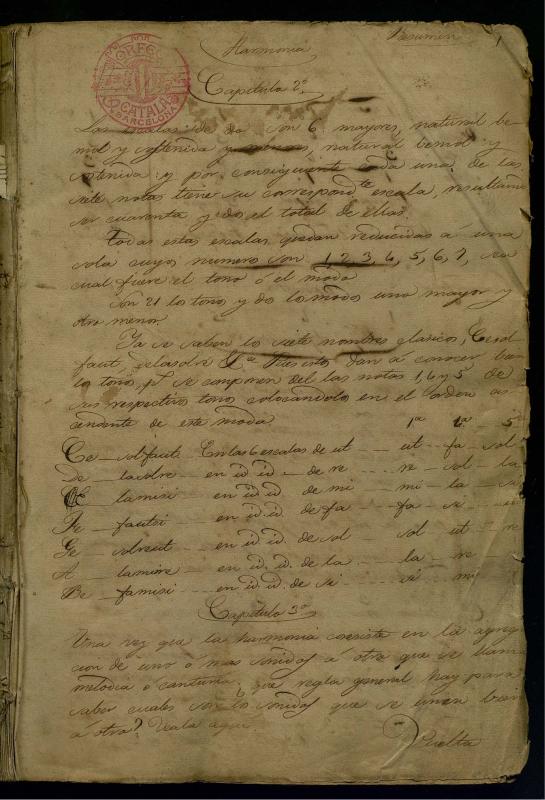 Resumen 1
Harmonia
Capitulo 2º
ORFEÓ CATALÀ BARCELONA
Las escalas de do son 6 mayores, natural be
mol y sostenida y menores, natural bemol y
sostenida y por consiguiente cada una de las
siete notas tiene su correspondte escala, resultan
ser cuarenta y dos el total de ellas.
Todas estas escalas quedan reducidas a una
sola cuyos numero son 1, 2, 3, 6, 5, 6, 7, sea
cual fuere el tono ó el modo
Son 21 los tonos y dos los modos uno mayor y
otro menor.
Ya se saben los siete nombres clasicos, Cesol
faut, delasolre &a Pues estos dan á conocer
los tonos, se componen de las notas 1, 6 y 5 de
sus respectivos tonos colocandolo en el orden as
cendente de este modo
1a 4a 5
Ce solfaute En las 6 escalas de ut ut fa sol
De lasolre en id id de re re sol la
E lamisi en id id de mi mi la si
Fe fautsi en id id de fa fa si
Ge solreut en id id de sol sol ut re
A lamire en id id de la la re
Be famisi en id id de si si mi
Capitulo 3º
Una vez que la harmonia consiste en la agrega
cion de uno ó mas sonidos á otro que se llama
melodia ó canturia, que regla general hay para
saber cuales son los sonidos que se unen bien
á otro? Veala aqui
Vuelta